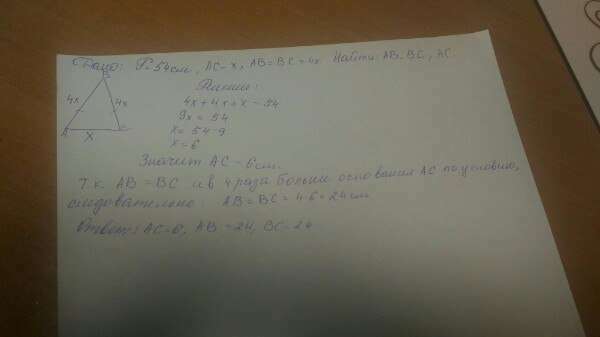 Дано: P=54см, AC-x, AB=BC=4x Найти: AB, BC, AC.
B
4x 4x
A x C
Решение:
4x+4x+x-54
9x=54
x=54:9
x=6
Значит AC-6см.
Т.к. AB=BC и в 4 раза больше основания AC по условию,
следовательно: AB=BC=4·6=24см
Ответ: AC-6, AB=24, BC-24